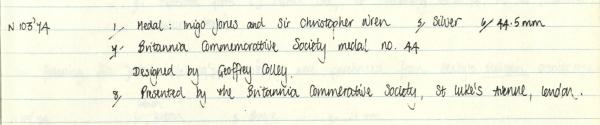 N 103'74 1/ Medal: Inigo Jones and Sir Christopher Wren 5/ Silver 6/ 44.5mm
7/ Britannia Commemorative Society medal no. 44
Designed by Geoffrey Colley.
8/ Presented by the Britannia Commerative Society, St Luke's Avenue, London.